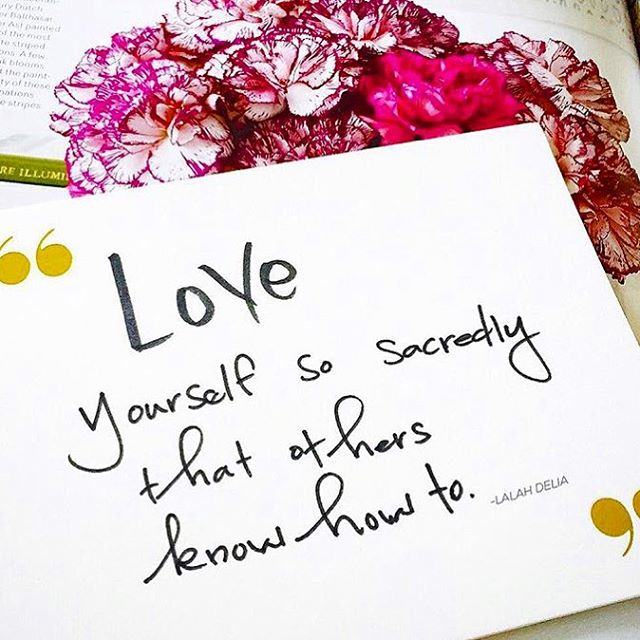 ory Dutch
Balthasar
Ast painted
of the most
e striped
ions. A few
k blooms
the paint-
y of these
e stripes
RE ILLUMI
Love
yourself so sacredly
that others
know how to.
-LALAH DELIA